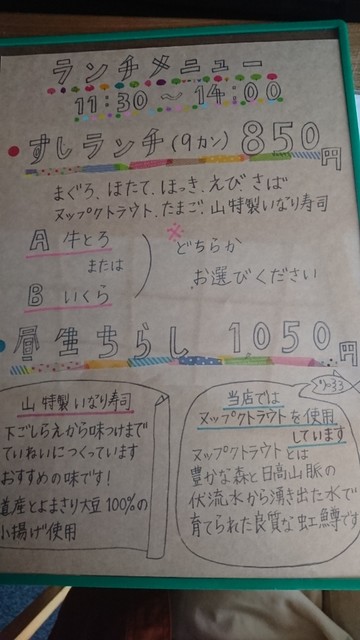 ランチメニュー
11:30～14:00
すしランチ(9カン) 850円
まぐろ、ほたて、ほっき、えび、さば
ヌップクトラウト、たまご、山特製いなり寿司
A 牛とろ
または
B いくら
※どちらか
お選びください
昼生ちらし 1050円
山特製いなり寿司
下ごしらえから味つけまで
ていねいにつくっています
おすすめの味です!
道産とよまさり大豆100%の
小揚げ使用
当店では
ヌップクトラウトを使用
しています
ヌップクトラウトとは
豊かな森と日高山脈の
伏流水から湧き出た水で
育てられた良質な虹鱒です